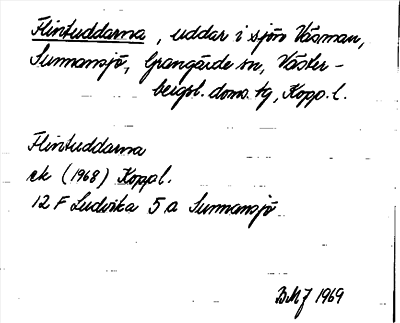 Flintuddarna, uddar i sjön Väsman,
Sunnansjö, Grangärde sn, Väster-
bergsl. doms. tg, Kopp. l.
Flintuddarna
ek (1968) Koppl.
12 F Ludvika 5 a Sunnansjö
BMJ 1969